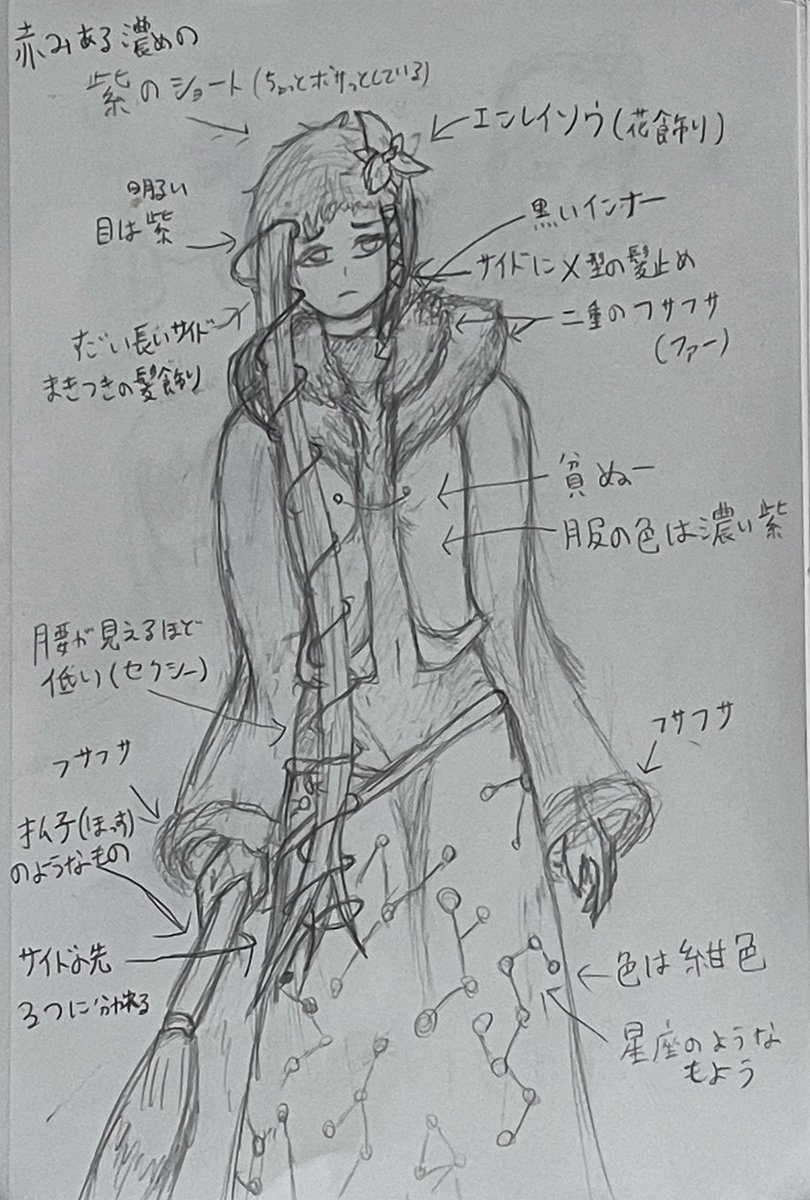 赤みある濃めの
紫のショート(ちょっとボサっとしている)
エンレイソウ(花飾り)
明るい
目は紫
黒いインナー
サイドにX型の髪止め
二重のフサフサ
(ファー)
すごい長いサイド
まきつきの髪飾り
貧ぬー
服の色は濃い紫
腰が見えるほど
低い(セクシー)
フサフサ
フサフサ
払子(ほっす)
のようなもの
サイドは先
3つに分かれる
色は紺色
星座のような
もよう